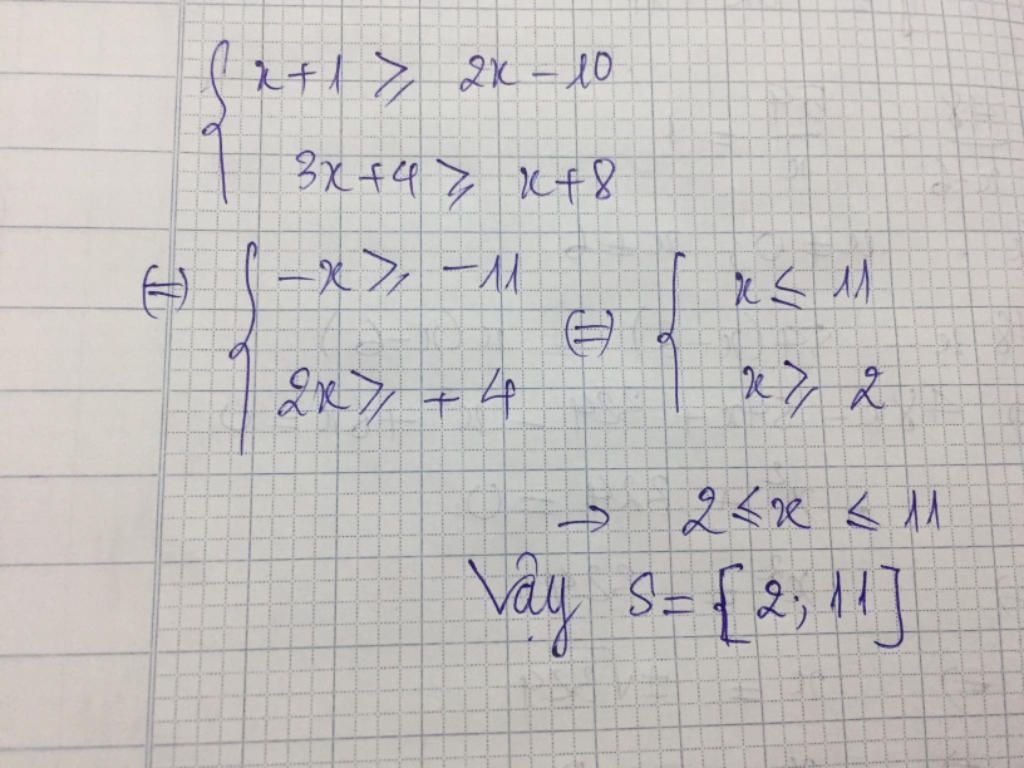 x+1 ⩾ 2x-10
3x+4 ⩾ x+8
(=) -x ⩾ -11 (=) x ≤ 11
2x ⩾ +4 x ⩾ 2
→ 2 ≤ x ≤ 11
Vậy S = [2; 11]